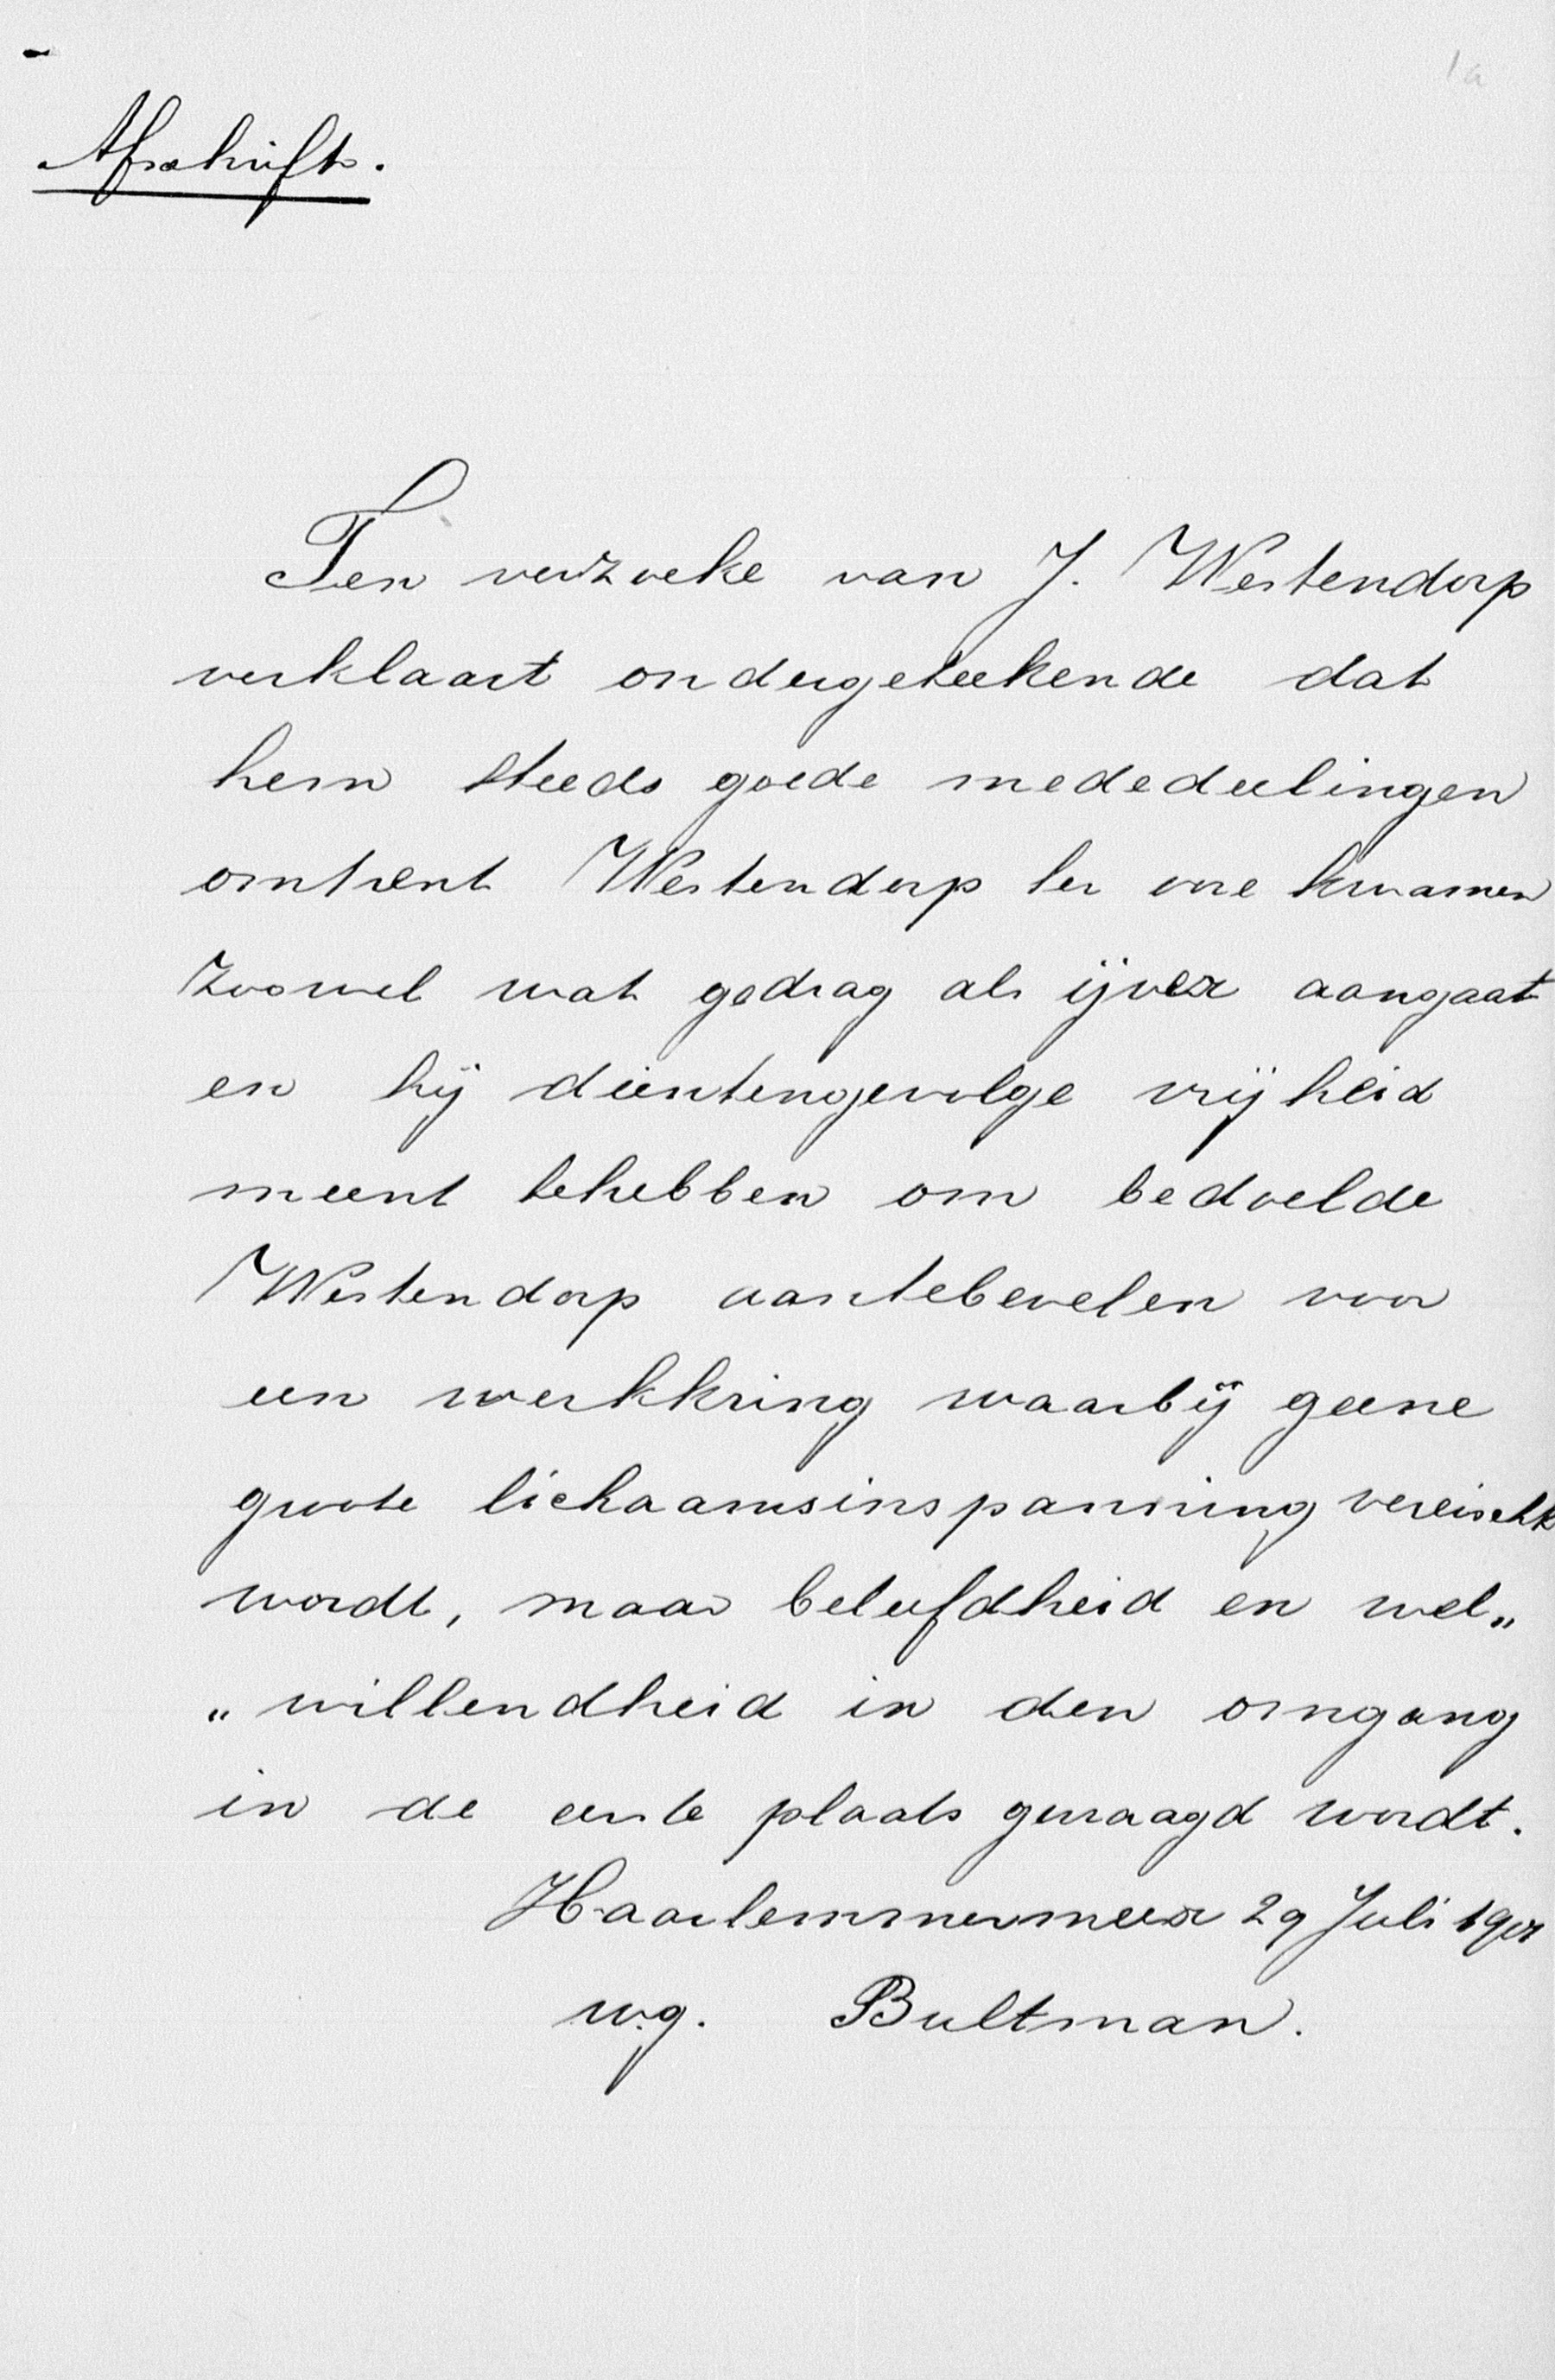 1a
Afschrift.
Ten verzoeke van J. Westendorp
verklaart ondergeteekende dat
hem steeds goede mededeelingen
omtrent Westendorp ter oore kwamen
zoowel wat gedrag als ijver aangaat
en hij dientengevolge vrijheid
meent tehebben om bedoelde
Westendorp aantebevelen voor
een werkkring waarbij geene
groote lichaamsinspanning vereischt
wordt, maar beleefdheid en wel„
„willendheid in den omgang
in de eerste plaats gevraagd wordt.
Haarlemmermeer 29 Juli
w.g. Bultman.